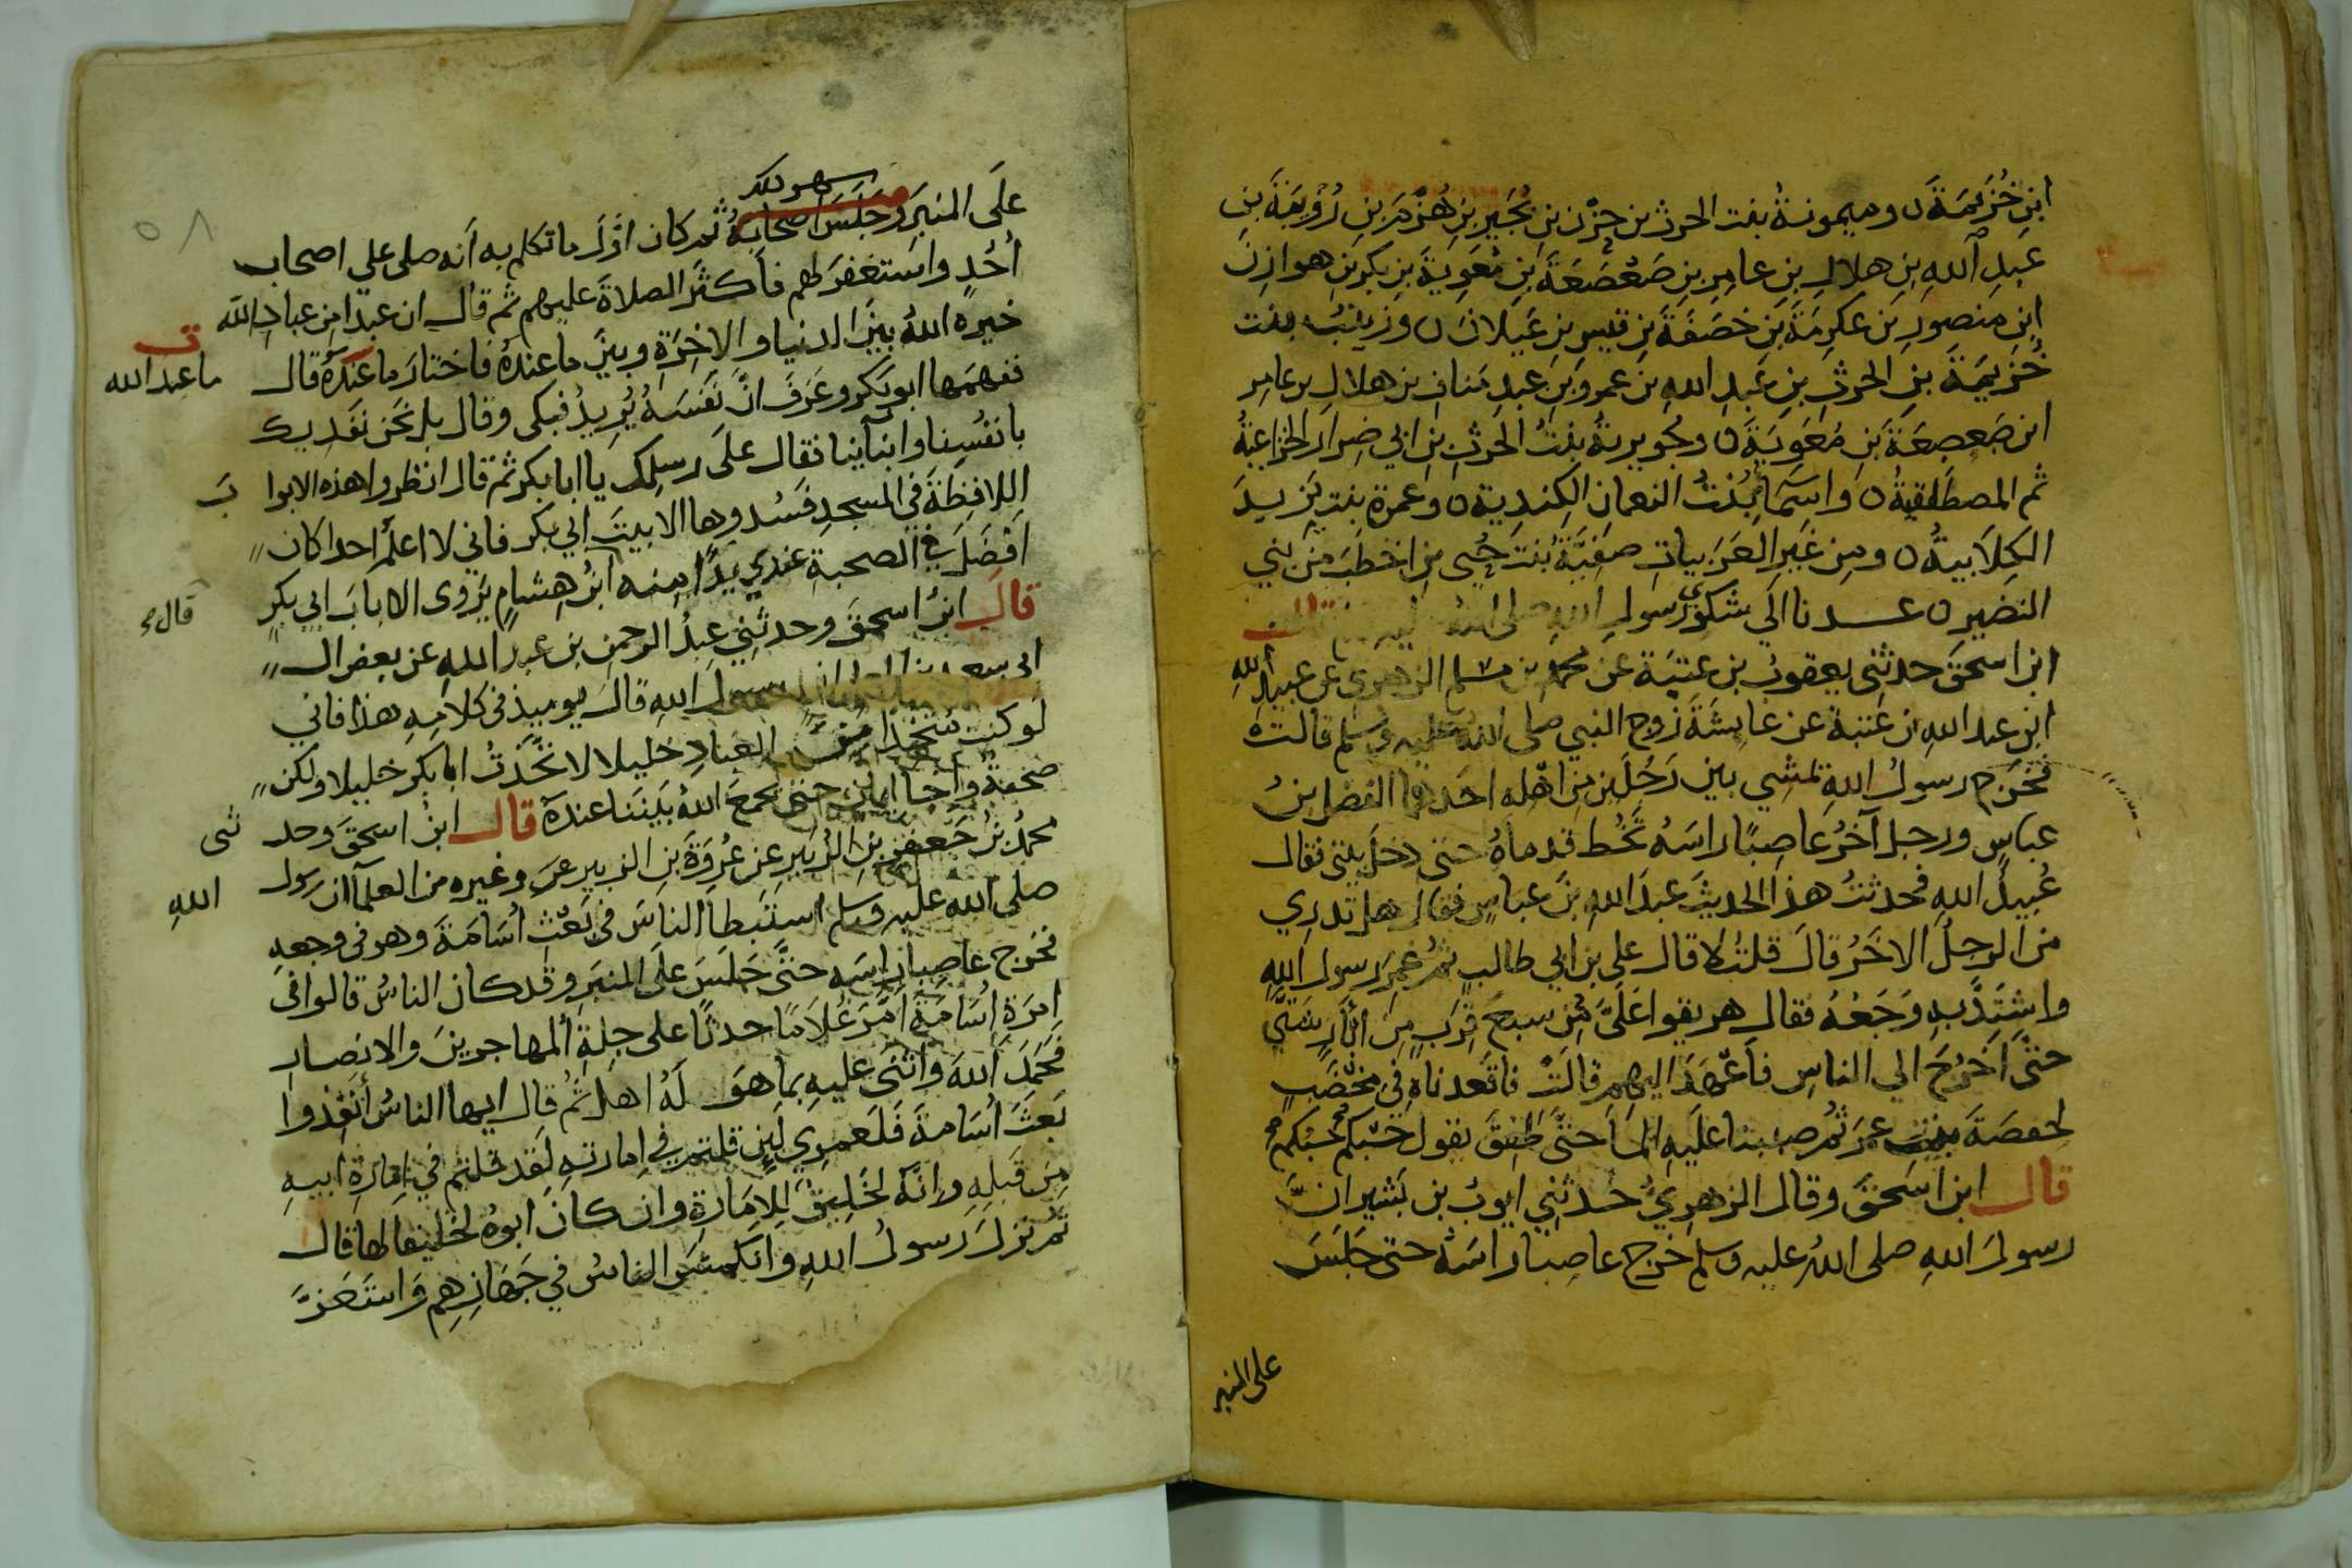 ابن خُزَيمَةَ ن وميمونةُ بنت الحرث بن حزن بن بُجَيرِ بنِ هُزَمَ بنِ رُوَيبَةَ بنِ
عبدِ اللهِ بنِ هلالِ بنِ عامِرِ بنِ صَعصَعَةَ بنِ مُعَوِيَةَ بنِ بكرِ بنِ هوازِنَ
ابنِ منصورِ بن عكرِمَةَ بنِ خصَفَةَ بنِ قيسِ بنِ عَيلانَ ن وزينبُ بنت
خُزَيمَةَ بنِ الحرثِ بنِ عَبدِ اللهِ بن عمرو بنِ عبدِ مَنافِ بن هلالِ بن عامِر
ابن صَعصِعَةَ بنِ مُعَوِيَةَ ن وجُويريةُ بنتُ الحَرثِ بنِ ابي ضِرار الخزاعيةُ
ثم المصطَلقيةُ ن واسمَاءُ بنتُ النعمانِ الكِندِية ن وعمرة بنت يَزيدَ
الكِلَابيةُ ن ومِن غَيرِ العَرَبياتِ صَفِيَّةُ بنت حُيي بنِ اخطَبَ مِن بني
النضيرِ ن عدنا الى شكوى رسولِ اللهِ صلى اللهُ عليه وسلم قال
ابن اسحقَ حدثني يعقوبُ بن عتبَة عن محمد بن مسلم الزهري عن عبيد اللهِ
ابن عبد اللهِ بن عتبة عن عايشَةَ زوج النبي صلى اللهُ عليه وسلم قالت
فخَرَج رسولُ اللهِ يمشي بين رَجُلَينِ من اهله احَدهما الفضل بنُ
عباسٍ ورجل آخرُ عاصِبًا راسَهُ تخُط قدماهُ حتى دخل بيتي فقال
عُبيدُ الله فحدثتُ هذا الحديثَ عبدَ اللهِ بنَ عباسٍ فقال هل تدري
من الرجلُ الاخَرُ قالَ قلتُ لا قال علي بن ابي طالبٍ ثم غمِرَ رسول اللهِ
واشتَدَّ به وَجَعُهُ فقال هريقوا عَلَيَّ مِن سبع قِرَبٍ مِن ابآرٍ شَتَّى
حتَّى اخرُجَ الي الناسِ فاَعهَدَ اليهِم قالَت فاَقعدناهِ في مِخضَبٍ
لحفصَةَ بنت عمر ثم صببنا عَلَيهِ المآ حتَّى طفِقَ يقول حَسبكم حَسبُكم
قال ابن اسحَقَ وقال الزهرِيُ حَدثني ايوبُ بن بشير انَّ
رسولَ اللهِ صلى اللهُ عليه وسلم خرج عاصِبًا راسَهُ حتى جَلَسَ
على المنبر
٥٨
علَى المنبَرِ وجَلَسَ اصحابهُ ثم كان اوَّلَ ما تكلم به اَنه صلى علي اصحاب
اُحُدٍ واستغفرَ لهم فأكثرَ الصلاةَ عليهم ثم قال ان عبدًا من عبادِ الله
خيره اللهُ بينَ الدنيا والاخِرَةِ وبينَ ما عندهُ فاختارَ ما عندهُ قال
ما عند الله
ففهمَها ابو بَكر وعَرَفَ انَّ نَفسَهُ يُرِيدُ فبكى وقال بل نحَن نَفدِيكَ
بانفُسِنا وابنآينا فقال علَى رسلِكَ يا ابا بكر ثم قال انظروا هذه الابوا بَ
اللافِظَةَ في المسجدِ فَسُدوها الا بيتَ ابي بكر فاني لا اعلم احدا كان
افضَلَ في الصحبةِ عندي يَدًا مِنه ابنُ هِشامٍ يَروى الا بابَ ابي بكرٍ
قال ابن اسحقَ وحدثني عبدُ الرحمن بن عبد اللهِ عن بعض ال
ابي سعيد بن المعلى ان رسولَ اللهِ قالَ يوميذٍ في كلامِهِ هذا فاني
لو كنت متخذا مِنَ العِبادِ خليلا لاتخَّذتُ ابا بكر خليلا ولكن
صحبةٌ واِخا ايمانٍ حتى يجمعَ اللهُ بَينَنا عندهُ قال ابن اسحقَ وحد ثنى
محمدُ بنُ جَعفَرِ بنِ الزُبَير عن عُروَةَ بنِ الزبير وغيره من العلمآ ان رسول اللهِ
صلى الله عليه وسلم استَبطا الناسَ في بَعثِ اُسَامَةَ وهو في وجعهِ
فخرج عاصِبا راسَه حتَّى جَلَسَ علَى المنبَرِ وقد كان الناسُ قالوا في
اِمرَةِ اُسَامَةَ اَمَّرَ غُلَامًا حدثًا على جِلةِ المهاجرينَ والانصارِ
فحَمَدَ اللهَ واثنَى عليهِ بما هوَ لَهُ اهل ثُم قال ايها الناسُ اَنفِذوا
بَعثَ اُسَامةَ فَلَعمرِي لَئِن قلتم في اِمارتهِ لقد قلتم في امارةِ ابيهِ
مِن قَبلِهِ وانَّه لخَلِيقٌ للاِمَارةِ وان كانَ ابوهُ لخليقا لها قال
ثم نزلَ رسولُ اللهِ وانكمشَ الناسُ في جَهَازِهِم واستَعَزَّ